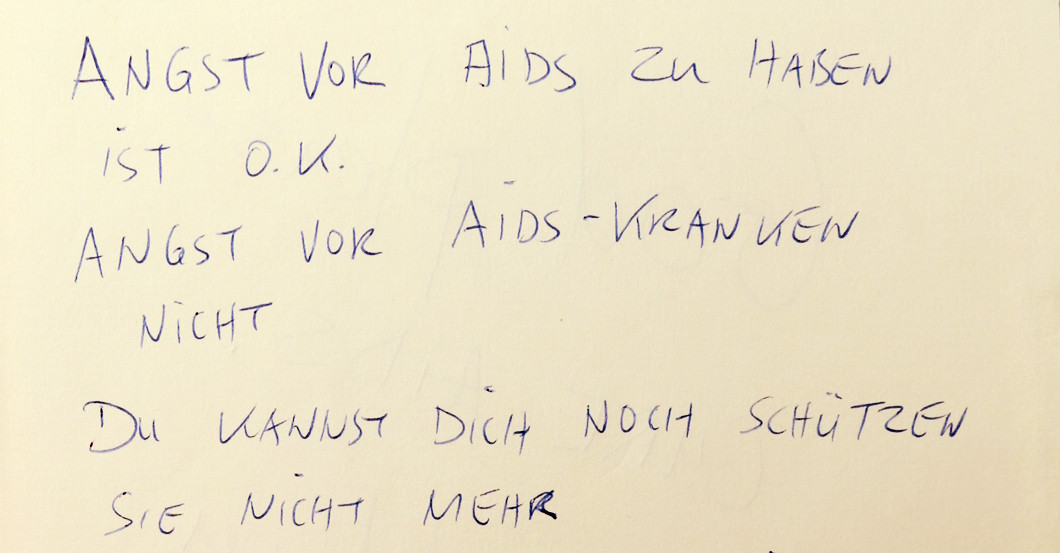 ANGST VOR AIDS ZU HABEN
IST O.K.
ANGST VOR AIDS-KRANKEN
NICHT
DU KANNST DICH NOCH SCHÜTZEN
SIE NICHT MEHR